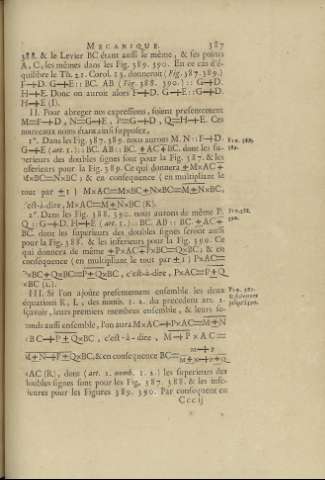 MECANIQUE. 387
388. & le Levier BC étant aussi le même, & ses points
A, C, les mêmes dans les Fig. 389. 390. En ce cas d'é-
quilibre le Th. 21. Corol. 13. donneroit (Fig. 387. 389.)
F∓D. G∓E :: BC. AB (Fig. 388. 390.) :: G∓D.
H∓E. Donc on auroit alors F∓D. G∓E :: G∓D.
H∓E (I).
II. Pour abreger nos expressions, soient presentement
M=F∓D, N=G∓E, P=G∓D, Q=H∓E. Ces
nouveaux noms étant ainsi supposez,
1°. Dans les Fig. 387. 389. nous aurons M. N :: F∓D.
G∓E (art. 1.) :: BC. AB :: BC. ±AC∓BC. dont les su-
perieurs des doubles signes sont pour la Fig. 387. & les
inferieurs pour la Fig. 389. Ce qui donnera ±M×AC∓
M×BC=N×BC ; & en consequence (en multipliant le
tout par ±1) M×AC=M×BC±N×BC=M±N×BC,
c'est-à-dire, M×AC=M±N×BC (K).
2°. Dans les Fig. 388. 390. nous aurons de même P.
Q :: G∓D. H∓E (art. 1.) :: BC. AB :: BC. ±AC∓
BC. dont les superieurs des doubles signes seront aussi
pour la Fig. 388. & les inferieurs pour la Fig. 390. Ce
qui donnera de même ±P×AC∓P×BC=Q×BC ; & en
consequence (en multipliant le tout par ±1) P×AC=
P×BC±Q×BC=P±Q×BC, c'est-à-dire, P×AC=P±Q
×BC (L).
III. Si l'on ajoûte presentement ensemble les deux
équations K, L, des nomb. 1. 2. du precedent art. 2.
sçavoir, leurs premiers membres ensemble, & leurs se-
conds aussi ensemble, l'on aura M×AC+P×AC=M±N
×BC+P±Q×BC, c'est-à-dire, M+P×AC=
M±N+P±Q×BC, & en consequence BC= M+P / M±N+P±Q
×AC (R), dont (art. 2. nomb. 1. 2.) les superieurs des
doubles signes sont pour les Fig. 387. 388. & les infe-
rieurs pour les Figures 389. 390. Par consequent en
Cccij